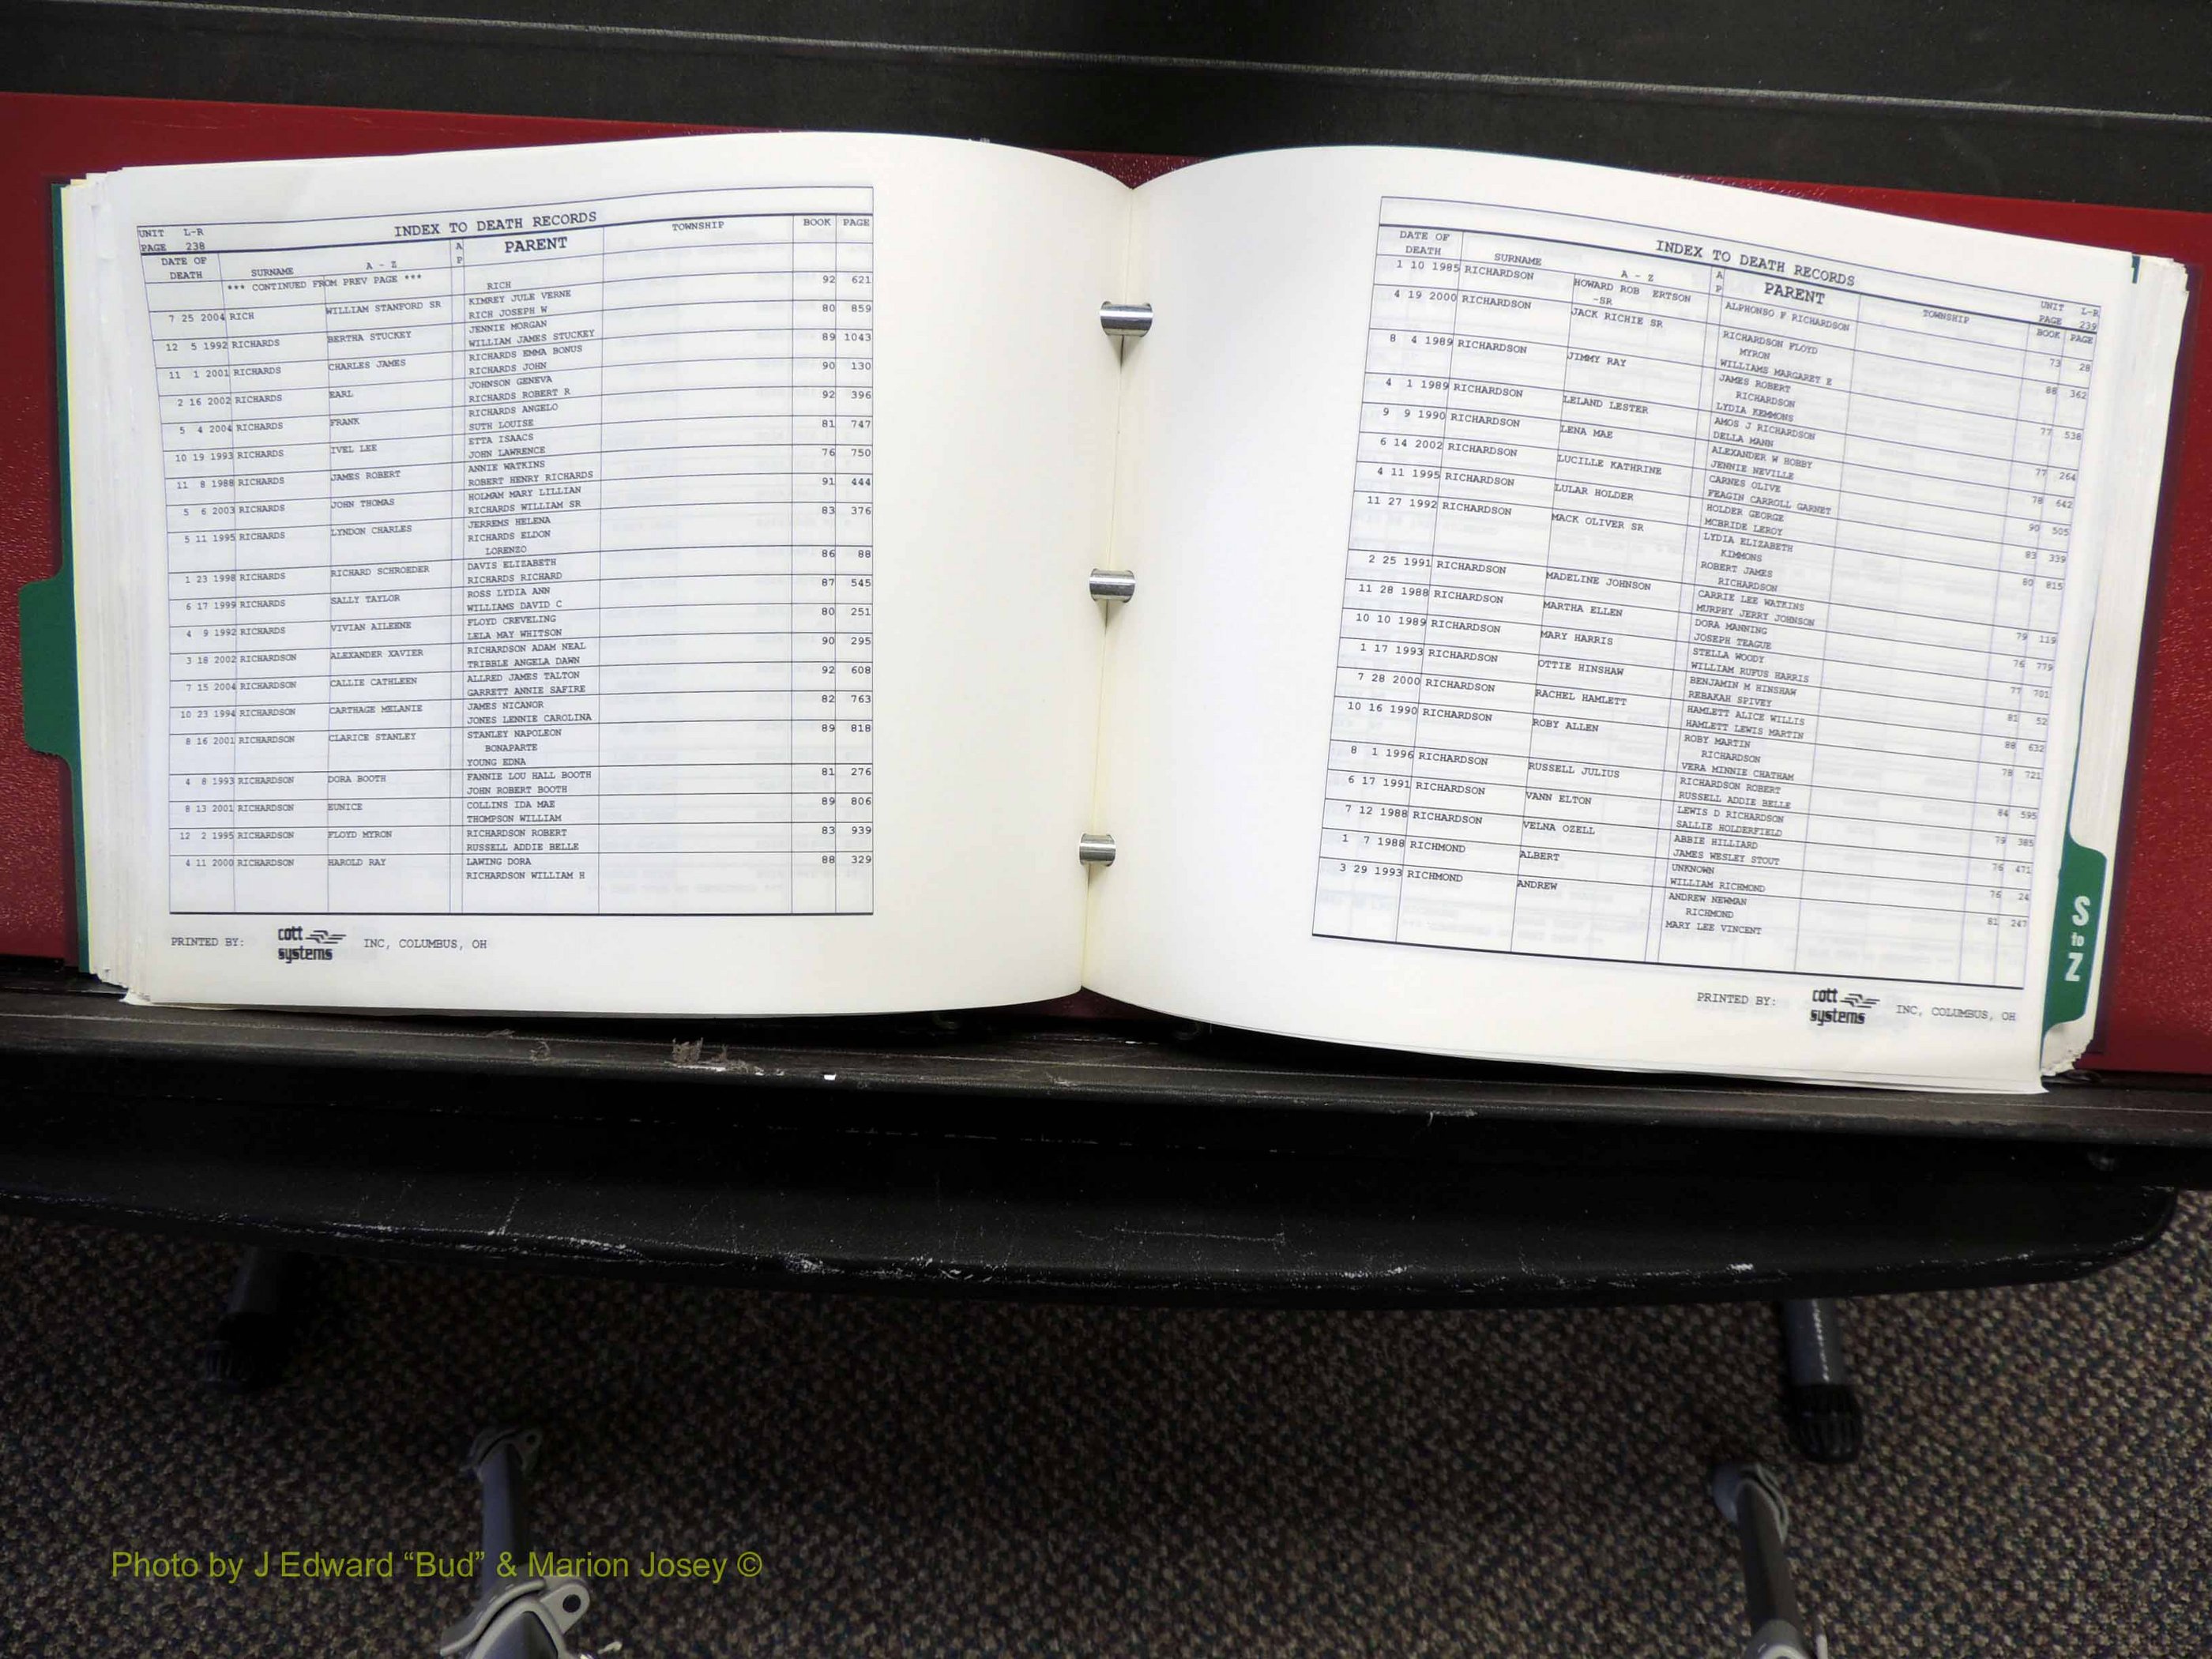 UNIT L-R INDEX TO DEATH RECORDS TOWNSHIP BOOK PAGE
PAGE 238 A P PARENT
DATE OF DEATH SURNAME A - Z
*** CONTINUED FROM PREV PAGE *** RICH
7 25 2004 RICH WILLIAM STANFORD SR KIMREY JULE VERNE 92 621
RICH JOSEPH W
12 5 1992 RICHARDS BERTHA STUCKEY JENNIE MORGAN 80 859
WILLIAM JAMES STUCKEY
11 1 2001 RICHARDS CHARLES JAMES RICHARDS EMMA BONUS 89 1043
RICHARDS JOHN
2 16 2002 RICHARDS EARL JOHNSON GENEVA 90 130
RICHARDS ROBERT R
5 4 2004 RICHARDS FRANK RICHARDS ANGELO 92 396
SUTH LOUISE
10 19 1993 RICHARDS IVEL LEE ETTA ISAACS 81 747
JOHN LAWRENCE
11 8 1988 RICHARDS JAMES ROBERT ANNIE WATKINS 76 750
ROBERT HENRY RICHARDS
5 6 2003 RICHARDS JOHN THOMAS HOLMAN MARY LILLIAN 91 444
RICHARDS WILLIAM SR
5 11 1995 RICHARDS LYNDON CHARLES JERREMS HELENA 83 376
RICHARDS ELDON
LORENZO
1 23 1998 RICHARDS RICHARD SCHROEDER DAVIS ELIZABETH 86 88
RICHARDS RICHARD
6 17 1999 RICHARDS SALLY TAYLOR ROSS LYDIA ANN 87 545
WILLIAMS DAVID C
4 9 1992 RICHARDS VIVIAN AILEENE FLOYD CREVELING 80 251
LELA MAY WHITSON
3 18 2002 RICHARDSON ALEXANDER XAVIER RICHARDSON ADAM NEAL 90 295
TRIBBLE ANGELA DAWN
7 15 2004 RICHARDSON CALLIE CATHLEEN ALLRED JAMES TALTON 92 608
GARRETT ANNIE SAFIRE
10 23 1994 RICHARDSON CARTHAGE MELANIE JAMES NICANOR 82 763
JONES LENNIE CAROLINA
8 16 2001 RICHARDSON CLARICE STANLEY STANLEY NAPOLEON 89 818
BONAPARTE
YOUNG EDNA
4 8 1993 RICHARDSON DORA BOOTH FANNIE LOU HALL BOOTH 81 276
JOHN ROBERT BOOTH
8 13 2001 RICHARDSON EUNICE COLLINS IDA MAE 89 806
THOMPSON WILLIAM
12 2 1995 RICHARDSON FLOYD MYRON RICHARDSON ROBERT 83 939
RUSSELL ADDIE BELLE
4 11 2000 RICHARDSON HAROLD RAY LAWING DORA 88 329
RICHARDSON WILLIAM H
PRINTED BY: cott systems INC, COLUMBUS, OH
INDEX TO DEATH RECORDS UNIT L-R
DATE OF DEATH SURNAME A - Z A P PARENT TOWNSHIP PAGE 239
BOOK PAGE
1 10 1985 RICHARDSON HOWARD ROB ERTSON ALPHONSO F RICHARDSON 73 28
-SR
4 19 2000 RICHARDSON JACK RICHIE SR RICHARDSON FLOYD 88 362
MYRON
WILLIAMS MARGARET E
8 4 1989 RICHARDSON JIMMY RAY JAMES ROBERT 77 538
RICHARDSON
LYDIA KEMMONS
4 1 1989 RICHARDSON LELAND LESTER AMOS J RICHARDSON 77 264
DELLA MANN
9 9 1990 RICHARDSON LENA MAE ALEXANDER W HOBBY 78 642
JENNIE NEVILLE
6 14 2002 RICHARDSON LUCILLE KATHRINE CARNES OLIVE 90 505
FEAGIN CARROLL GARNET
4 11 1995 RICHARDSON LULAR HOLDER HOLDER GEORGE 83 339
MCBRIDE LEROY
11 27 1992 RICHARDSON MACK OLIVER SR LYDIA ELIZABETH 80 815
KIMMONS
ROBERT JAMES
RICHARDSON
2 25 1991 RICHARDSON MADELINE JOHNSON CARRIE LEE WATKINS 79 119
MURPHY JERRY JOHNSON
11 28 1988 RICHARDSON MARTHA ELLEN DORA MANNING 76 779
JOSEPH TEAGUE
10 10 1989 RICHARDSON MARY HARRIS STELLA WOODY 77 701
WILLIAM RUFUS HARRIS
1 17 1993 RICHARDSON OTTIE HINSHAW BENJAMIN M HINSHAW 81 52
REBAKAH SPIVEY
7 28 2000 RICHARDSON RACHEL HAMLETT HAMLETT ALICE WILLIS 88 632
HAMLETT LEWIS MARTIN
10 16 1990 RICHARDSON ROBY ALLEN ROBY MARTIN 78 721
RICHARDSON
VERA MINNIE CHATHAM
8 1 1996 RICHARDSON RUSSELL JULIUS RICHARDSON ROBERT 84 595
RUSSELL ADDIE BELLE
6 17 1991 RICHARDSON VANN ELTON LEWIS D RICHARDSON 79 385
SALLIE HOLDERFIELD
7 12 1988 RICHARDSON VELNA OZELL ABBIE HILLIARD 76 471
JAMES WESLEY STOUT
1 7 1988 RICHMOND ALBERT UNKNOWN 76 24
WILLIAM RICHMOND
3 29 1993 RICHMOND ANDREW ANDREW NEWMAN 81 247
RICHMOND
MARY LEE VINCENT
PRINTED BY: cott systems INC, COLUMBUS, OH
S to Z
Photo by J Edward “Bud” & Marion Josey ©